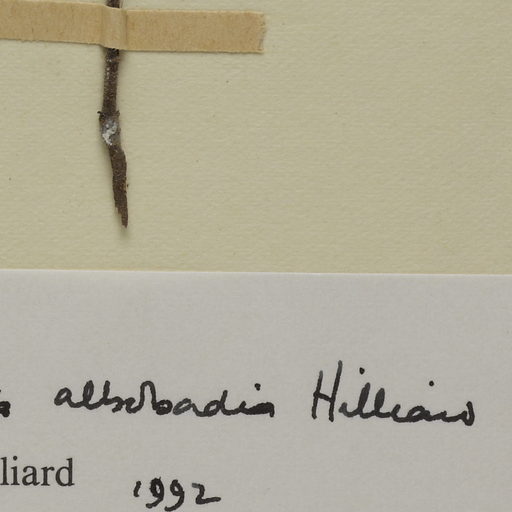 a albobadia Hilliard
lliard 1992